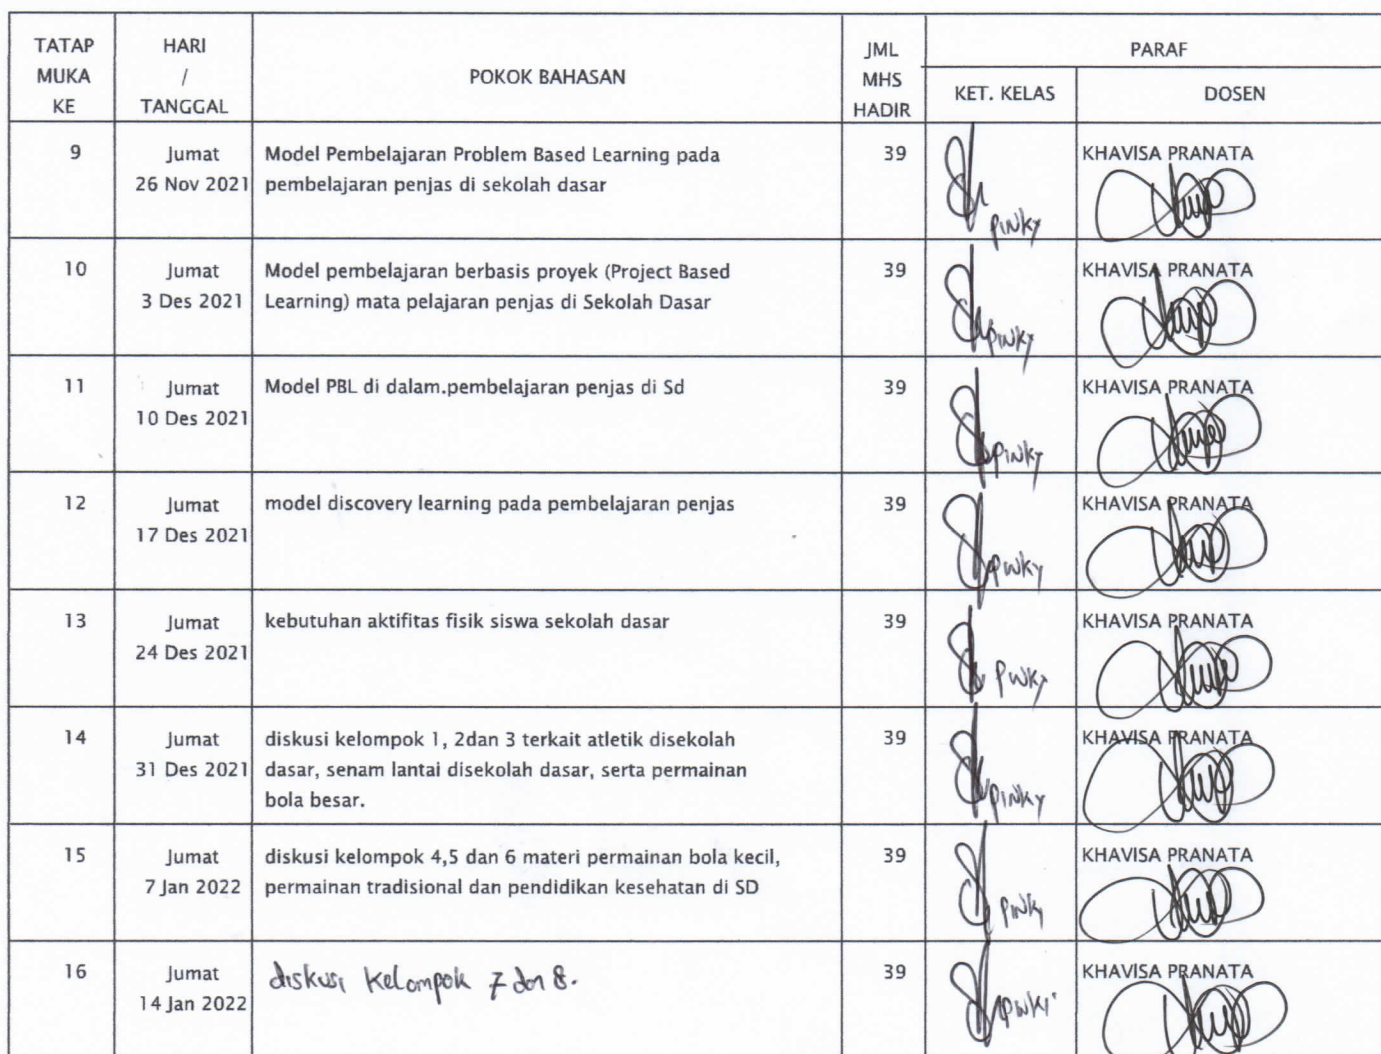 TATAP MUKA KE
HARI / TANGGAL
POKOK BAHASAN
JML MHS HADIR
PARAF
KET. KELAS
DOSEN
9
Jumat
26 Nov 2021
Model Pembelajaran Problem Based Learning pada
pembelajaran penjas di sekolah dasar
39
PINKY
KHAVISA PRANATA
10
Jumat
3 Des 2021
Model pembelajaran berbasis proyek (Project Based
Learning) mata pelajaran penjas di Sekolah Dasar
39
PINKY
KHAVISA PRANATA
11
Jumat
10 Des 2021
Model PBL di dalam.pembelajaran penjas di Sd
39
PINKY
KHAVISA PRANATA
12
Jumat
17 Des 2021
model discovery learning pada pembelajaran penjas
39
PINKY
KHAVISA PRANATA
13
Jumat
24 Des 2021
kebutuhan aktifitas fisik siswa sekolah dasar
39
PINKY
KHAVISA PRANATA
14
Jumat
31 Des 2021
diskusi kelompok 1, 2dan 3 terkait atletik disekolah
dasar, senam lantai disekolah dasar, serta permainan
bola besar.
39
PINKY
KHAVISA PRANATA
15
Jumat
7 Jan 2022
diskusi kelompok 4,5 dan 6 materi permainan bola kecil,
permainan tradisional dan pendidikan kesehatan di SD
39
PINKY
KHAVISA PRANATA
16
Jumat
14 Jan 2022
diskusi Kelompok 7 dan 8.
39
PINKY
KHAVISA PRANATA